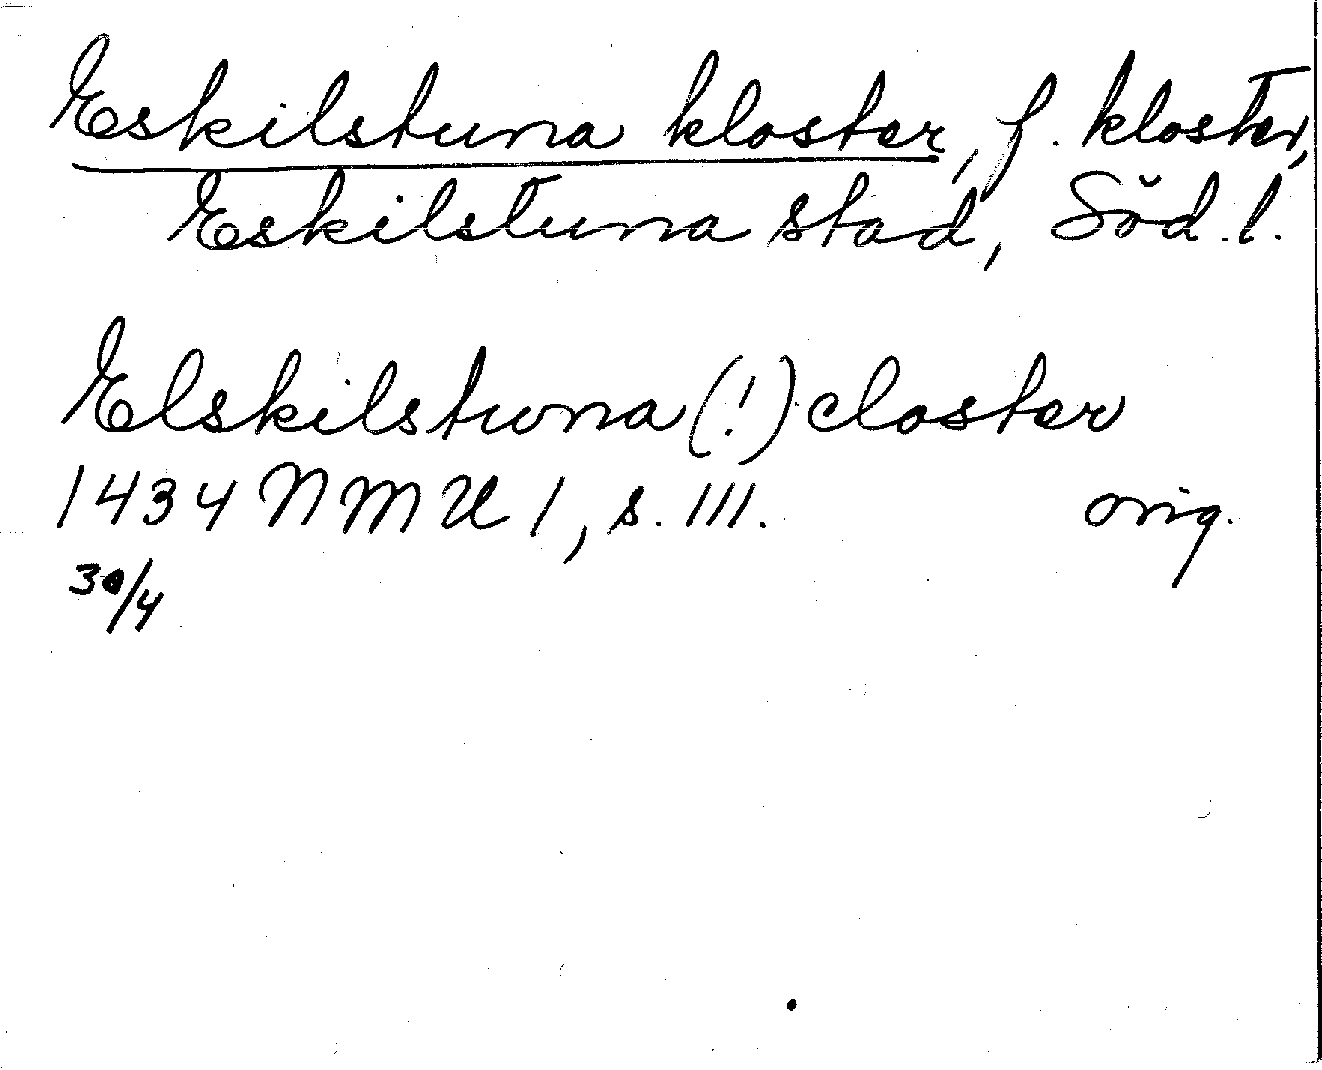 Eskilstuna kloster, f. kloster,
Eskilstuna stad, Söd. l.
Elskilstuna (!) closter
1434 NMU 1, s. 111. orig.
30/4